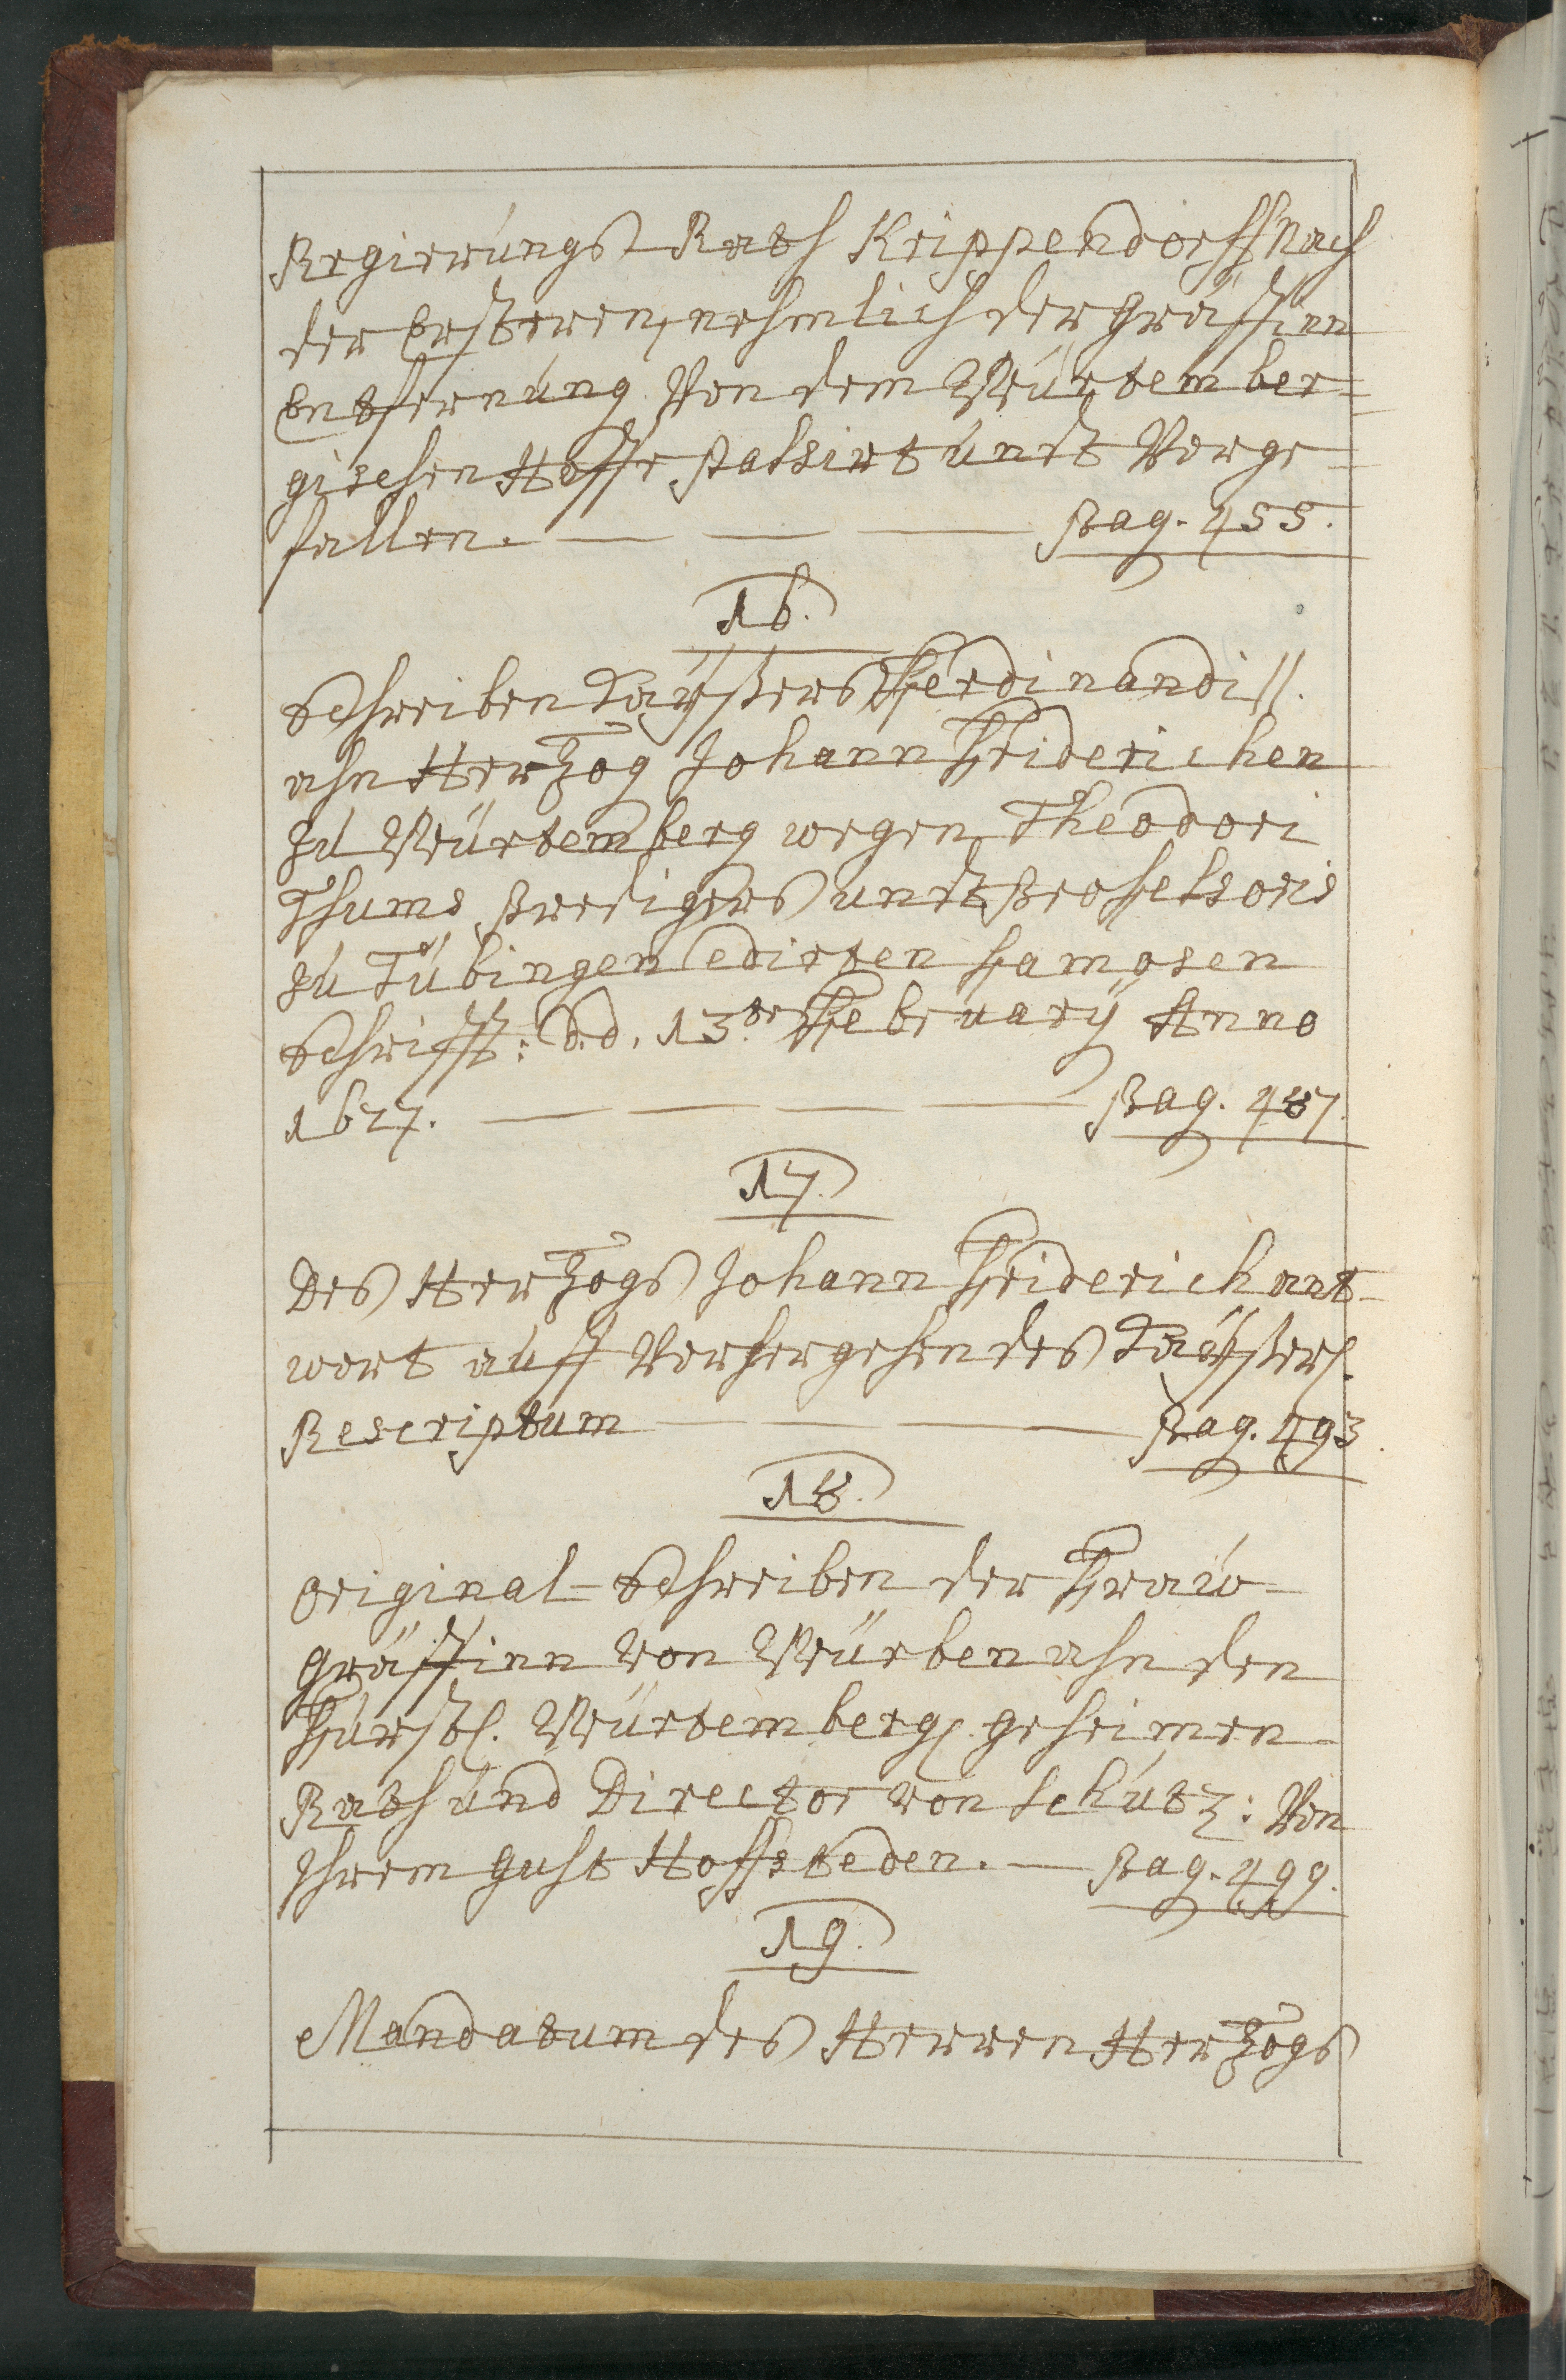 Regierungs-Rath Krippendorff Nach
der Ersteren, nehmlich der Gräffinn
Entfernung Von dem Würtember=
gischen Hoffe passirt undt Vorge=
fallen. — — — Pag. 455.
16.
Schreiben Kaÿßers Ferdinandi II.
ahn Hertzog Johann Friderichen
zu Würtemberg wegen Theodori
Thums Predigers undt Professoris
zu Tübingen edirten famosen
Schrifft: d.d. 13.te Februarÿ Anno
1627. — — — — Pag. 487.
17.
Des Hertzogs Johann Friderich ant-
wort auff Vorhergehendes Kaÿßerl.
Rescriptum — — — Pag. 493.
18.
Original-Schreiben der Fraw-
Gräffinn von Würben ahn den
Fürstl. Würtembergl. geheimen
Rath und Director von Schütz: Von
Ihrem Guht Hoffsteden. — Pag. 499.
19.
Mandatum des Herren Hertzogs